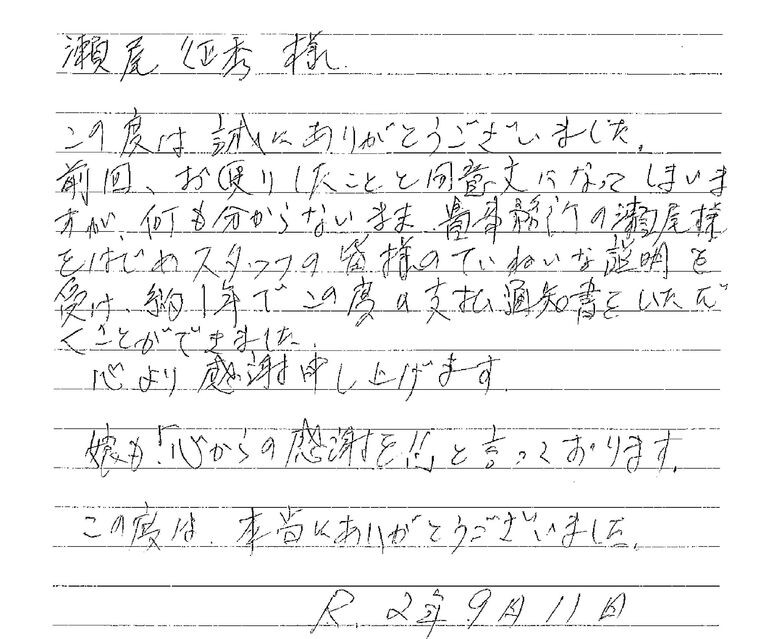 瀬尾 征秀 様
この度は 誠にありがとうございました。
前回、お便りしたことと同意文になってしまいま
すが、何も分からないまま、貴事務所の瀬尾様
をはじめスタッフの皆様のていねいな説明を
受け、約1年でこの度の支払通知書をいただ
くことができました。
心より感謝申し上げます。
娘も「心からの感謝を」と言っております。
この度は、本当にありがとうございました。
R. 2年9月11日